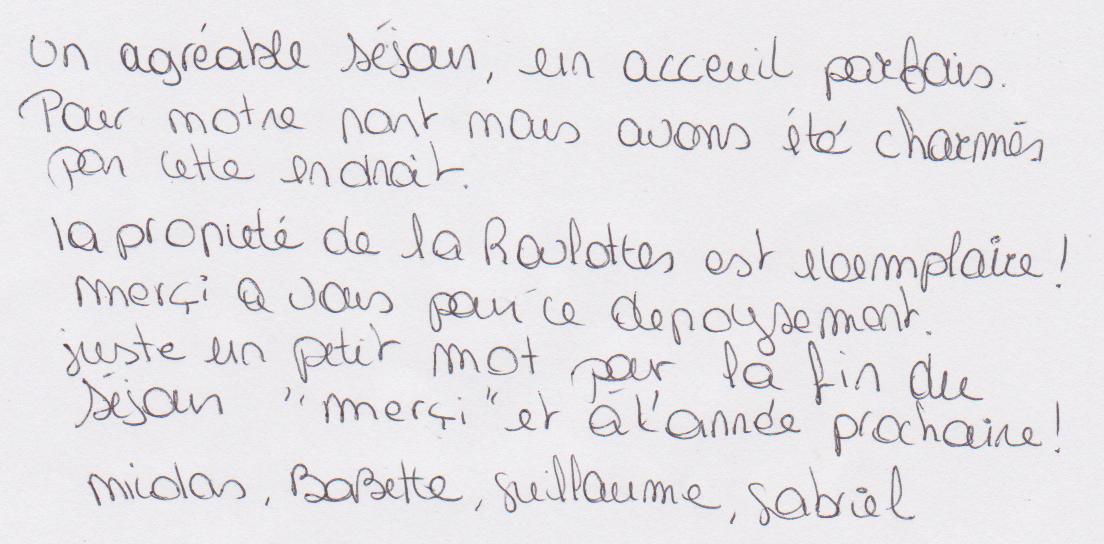 Un agréable séjour, un acceuil parfais.
Pour notre part nous avons été charmés
par cette endroit.
la propreté de la Roulottes est exemplaire !
merçi a vous pour ce depaysement.
juste un petit mot pour la fin du
séjour "merçi" et à l'année prochaine !
nicolas, BaBette, guillaume, gabriel